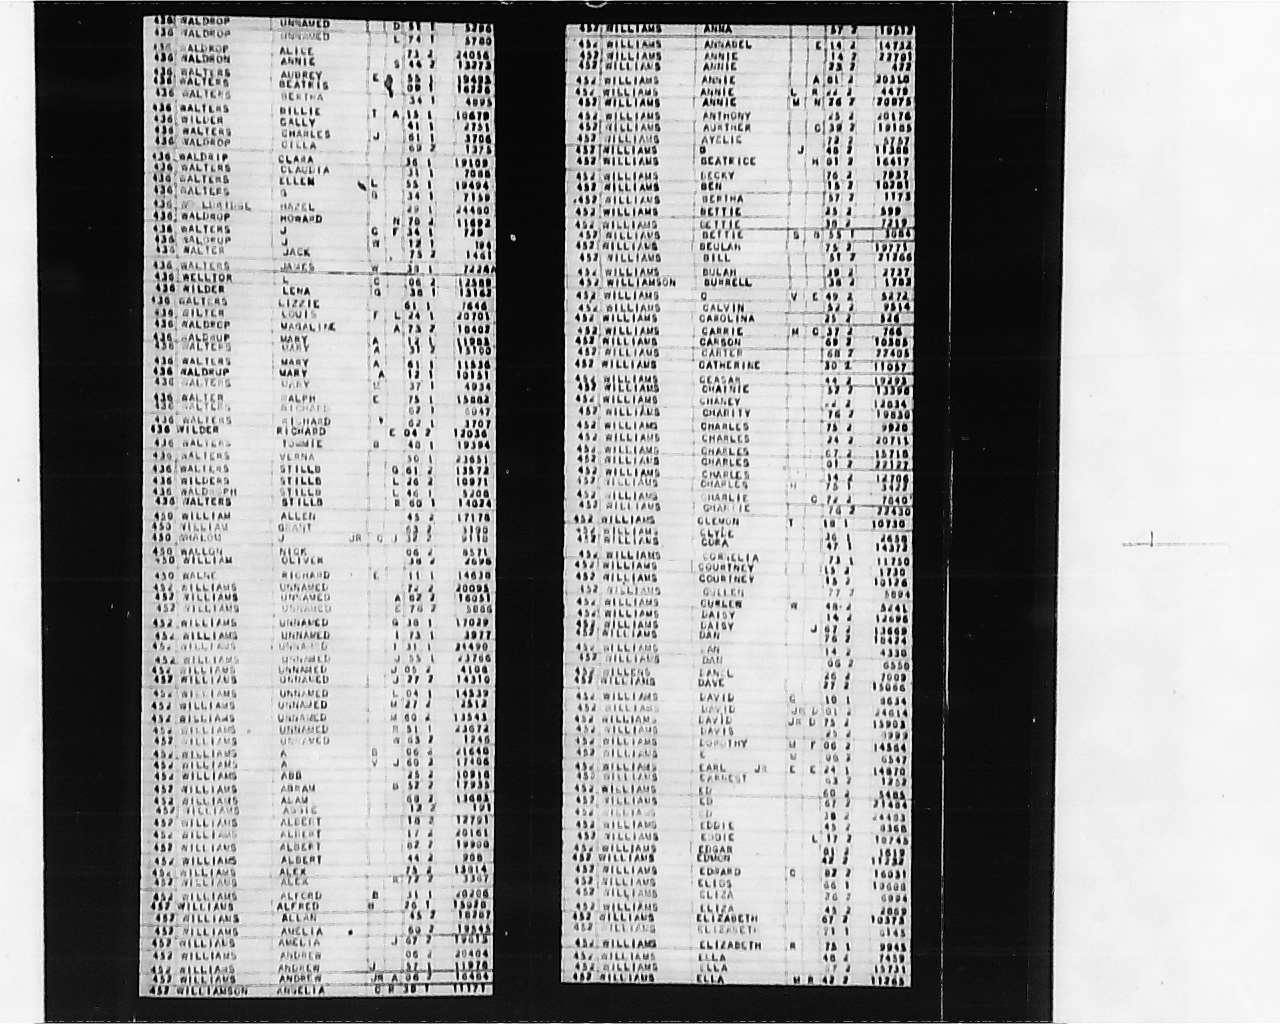 436 WALDROP UNNAMED D 51 1 5296
436 WALDROP UNNAMED L 74 1 5780
436 WALDROP ALICE 73 2 24056
436 WALDRON ANNIE S 44 2 13273
436 WALTERS AUBREY E 55 1 19495
436 WALTERS BEATRIS
436 WALTERS BERTHA 34 1 4895
436 WALTERS BILLIE T A 15 1 10679
436 WILDER CALLY 41 1 2751
436 WALTERS CHARLES J 61 1 3706
436 WALDROP CILLA 69 2 1375
436 WALDRIP CLARA 36 1 19109
436 WALTERS CLAUDIA 31 1 7086
436 WALTERS ELLEN L 55 1 19494
436 WALTERS G 34 1 7159
436 HAZEL 29 1 24480
436 WALDROP HOWARD N 70 2 11692
436 WALTERS J C F 34 1 729
436 WALDRUP J W 12 1 194
436 WALTER JACK 75 2 1461
436 WALTERS JAMES W 38 1
436 WELLTOR L C 06 2 12589
436 WILDER LENA G 38 1 13162
436 WALTERS LIZZIE 61 1 7646
436 WILTER LOUIS F L 24 1 20701
436 WALDROP MAGALINE A 73 2 10402
436 WALDRUP MARY A 12 1 11985
436 WALTERS MARY A 31 2 15100
436 WALTERS MARY A 61 1 11536
436 WALDRUP MARY A 12 1 10151
436 WALTERS MARY 37 1 4934
436 WALTER RALPH E 75 1 15882
436 WALTERS RICHARD 62 1 6047
436 WALTERS RICHARD 62 1 3707
436 WILDER RICHARD E 04 2 12036
436 WALTERS TOMMIE B 40 1 19394
436 WALTERS VERNA 30 1 23651
436 WALTERS STILLB G 61 2 13572
436 WILDERS STILLB L 26 2 10971
436 STILLB L 46 1 5208
436 WALTERS STILLB R 60 1 14024
450 WILLIAM ALLEN 45 2 17178
450 WILLIAM GRANT 63 2 3190
450 WHALOM J JR C J 32 2
450 WALLON NICK 06 2 8571
450 WILLIAM OLIVER 38 2 2696
450 WALNE RICHARD E 11 1 14638
452 WILLIAMS UNNAMED 72 2 20095
452 WILLIAMS UNNAMED A 82 2 16051
452 WILLIAMS UNNAMED E 76 2 5866
452 WILLIAMS UNNAMED G 38 1 17029
452 WILLIAMS UNNAMED I 73 1 3977
452 WILLIAMS UNNAMED I 31 1 24490
452 WILLIAMS UNNAMED J 55 1 23766
452 WILLIAMS UNNAMED J 05 2 4108
452 WILLIAMS UNNAMED J 27 2 14310
452 WILLIAMS UNNAMED L 04 1 14539
452 WILLIAMS UNNAMED M 27 2 2512
452 WILLIAMS UNNAMED M 60 2 13543
452 WILLIAMS UNNAMED R 51 1 23672
452 WILLIAMS UNNAMED W 63 2 1246
452 WILLIAMS A B 06 2 21640
452 WILLIAMS A V J 60 2 17406
452 WILLIAMS ABB 25 2 10916
452 WILLIAMS ABRAM B 52 2 17935
452 WILLIAMS ADAM 69 2 13685
452 WILLIAMS ADDIE 12 2 191
452 WILLIAMS ALBERT 18 2 12791
452 WILLIAMS ALBERT 17 2 20161
452 WILLIAMS ALBERT 82 2 19900
452 WILLIAMS ALBERT 44 2 906
452 WILLIAMS ALEX 75 2 13014
452 WILLIAMS ALEX R 77 2 3367
452 WILLIAMS ALFORD B 31 1 20206
452 WILLIAMS ALFRED 26 1 15020
452 WILLIAMS ALLAN 45 2 18207
452 WILLIAMS AMELIA 60 2 19545
452 WILLIAMS AMELIA J 67 2 19013
452 WILLIAMS ANDREW 06 2 20404
452 WILLIAMS ANDREW J 57 1 11976
452 WILLIAMS ANDREW JR A 06 2 16404
452 WILLIAMSON ANGELIA C R 30 1 11171
452 WILLIAMS ANNA 57 2 19512
452 WILLIAMS ANNABEL E 14 2 14732
452 WILLIAMS ANNIE 14 2 22701
452 WILLIAMS ANNIE 23 2 472
452 WILLIAMS ANNIE A 81 2 20310
452 WILLIAMS ANNIE L R 22 2 4479
452 WILLIAMS ANNIE M N 26 2 20875
452 WILLIAMS ANTHONY 25 2 20176
452 WILLIAMS AURTHER C 39 2 19185
452 WILLIAMS AVELIE 72 2 5757
452 WILLIAMS B J 11386
452 WILLIAMS BEATRICE H 01 2 16417
452 WILLIAMS BECKY 76 2 7937
452 WILLIAMS BEN 15 2 10281
452 WILLIAMS BERTHA 57 2 1173
452 WILLIAMS BETTIE 25 2 599
452 WILLIAMS BETTIE 38 2 7219
452 WILLIAMS BETTIE S B 55 1 3084
452 WILLIAMS BEULAH 75 2 19771
452 WILLIAMS BILL 51 2 21266
452 WILLIAMS BULAH 38 2 2737
452 WILLIAMSON BURRELL 38 2 1783
452 WILLIAMS C V E 49 2 5272
452 WILLIAMS CALVIN 52 2 9514
452 WILLIAMS CAROLINA 25 2 526
452 WILLIAMS CARRIE M C 37 2 766
452 WILLIAMS CARSON 69 2 10305
452 WILLIAMS CARTER 60 2 22405
452 WILLIAMS CATHERINE 30 2 11057
452 WILLIAMS CEASAR 44 2 19295
452 WILLIAMS CHAINIE 57 2 13390
452 WILLIAMS CHANEY 12834
452 WILLIAMS CHARITY 76 2 19830
452 WILLIAMS CHARLES 75 2 9920
452 WILLIAMS CHARLES 24 2 20711
452 WILLIAMS CHARLES 67 2 15718
452 WILLIAMS CHARLES 01 2 22127
452 WILLIAMS CHARLES 14 2 12706
452 WILLIAMS CHARLES H 75 1 3427
452 WILLIAMS CHARLIE C 72 2 7840
452 WILLIAMS CHARLIE 76 2 22430
452 WILLIAMS CLEMON T 18 1 10730
452 WILLIAMS CLYDE 36 1 2658
452 WILLIAMS CORA 47 1 14372
452 WILLIAMS CORNELIA 73 1 11750
452 WILLIAMS COURTNEY 15 2 1730
452 WILLIAMS COURTNEY 15 2 10126
452 WILLIAMS CULLEN 77 2 5894
452 WILLIAMS CURLEW W 48 2 5241
452 WILLIAMS DAISY 14 2 12696
452 WILLIAMS DAISY J 67 2 13669
452 WILLIAMS DAN 76 2 18424
452 WILLIAMS DAN 14 2 4330
452 WILLIAMS DAN 06 2 6550
452 WILLIAMS DANEL 26 2 7009
452 WILLIAMS DAVE 27 2 15066
452 WILLIAMS DAVID C 10 1 8634
452 WILLIAMS DAVID JR D 81 2 24614
452 WILLIAMS DAVID JR D 75 2 15903
452 WILLIAMS DAVIS 25 2
452 WILLIAMS DOROTHY M F 06 2 14564
452 WILLIAMS E M 06 2 6547
452 WILLIAMS EARL JR E E 24 1 14870
452 WILLIAMS EARNEST 63 2 1252
452 WILLIAMS ED 60 2 5485
452 WILLIAMS ED 67 2 21484
452 WILLIAMS ED 38 2 24403
452 WILLIAMS EDDIE 45 2 8368
452 WILLIAMS EDDIE L 17 2 10745
452 WILLIAMS EDGAR 81 2 1619
452 WILLIAMS EDMON 42 2 11232
452 WILLIAMS EDWARD C 82 2 16031
452 WILLIAMS ELIAS 66 1 19608
452 WILLIAMS ELIZA 26 2 6994
452 WILLIAMS ELIZA 45 2 2069
452 WILLIAMS ELIZABETH 67 2 10373
452 WILLIAMS ELIZABETH 21 1 6145
452 WILLIAMS ELIZABETH R 75 1 9945
452 WILLIAMS ELLA 48 2 7459
452 WILLIAMS ELLA 2 15731
452 WILLIAMS ELLA M R 42 2 11265